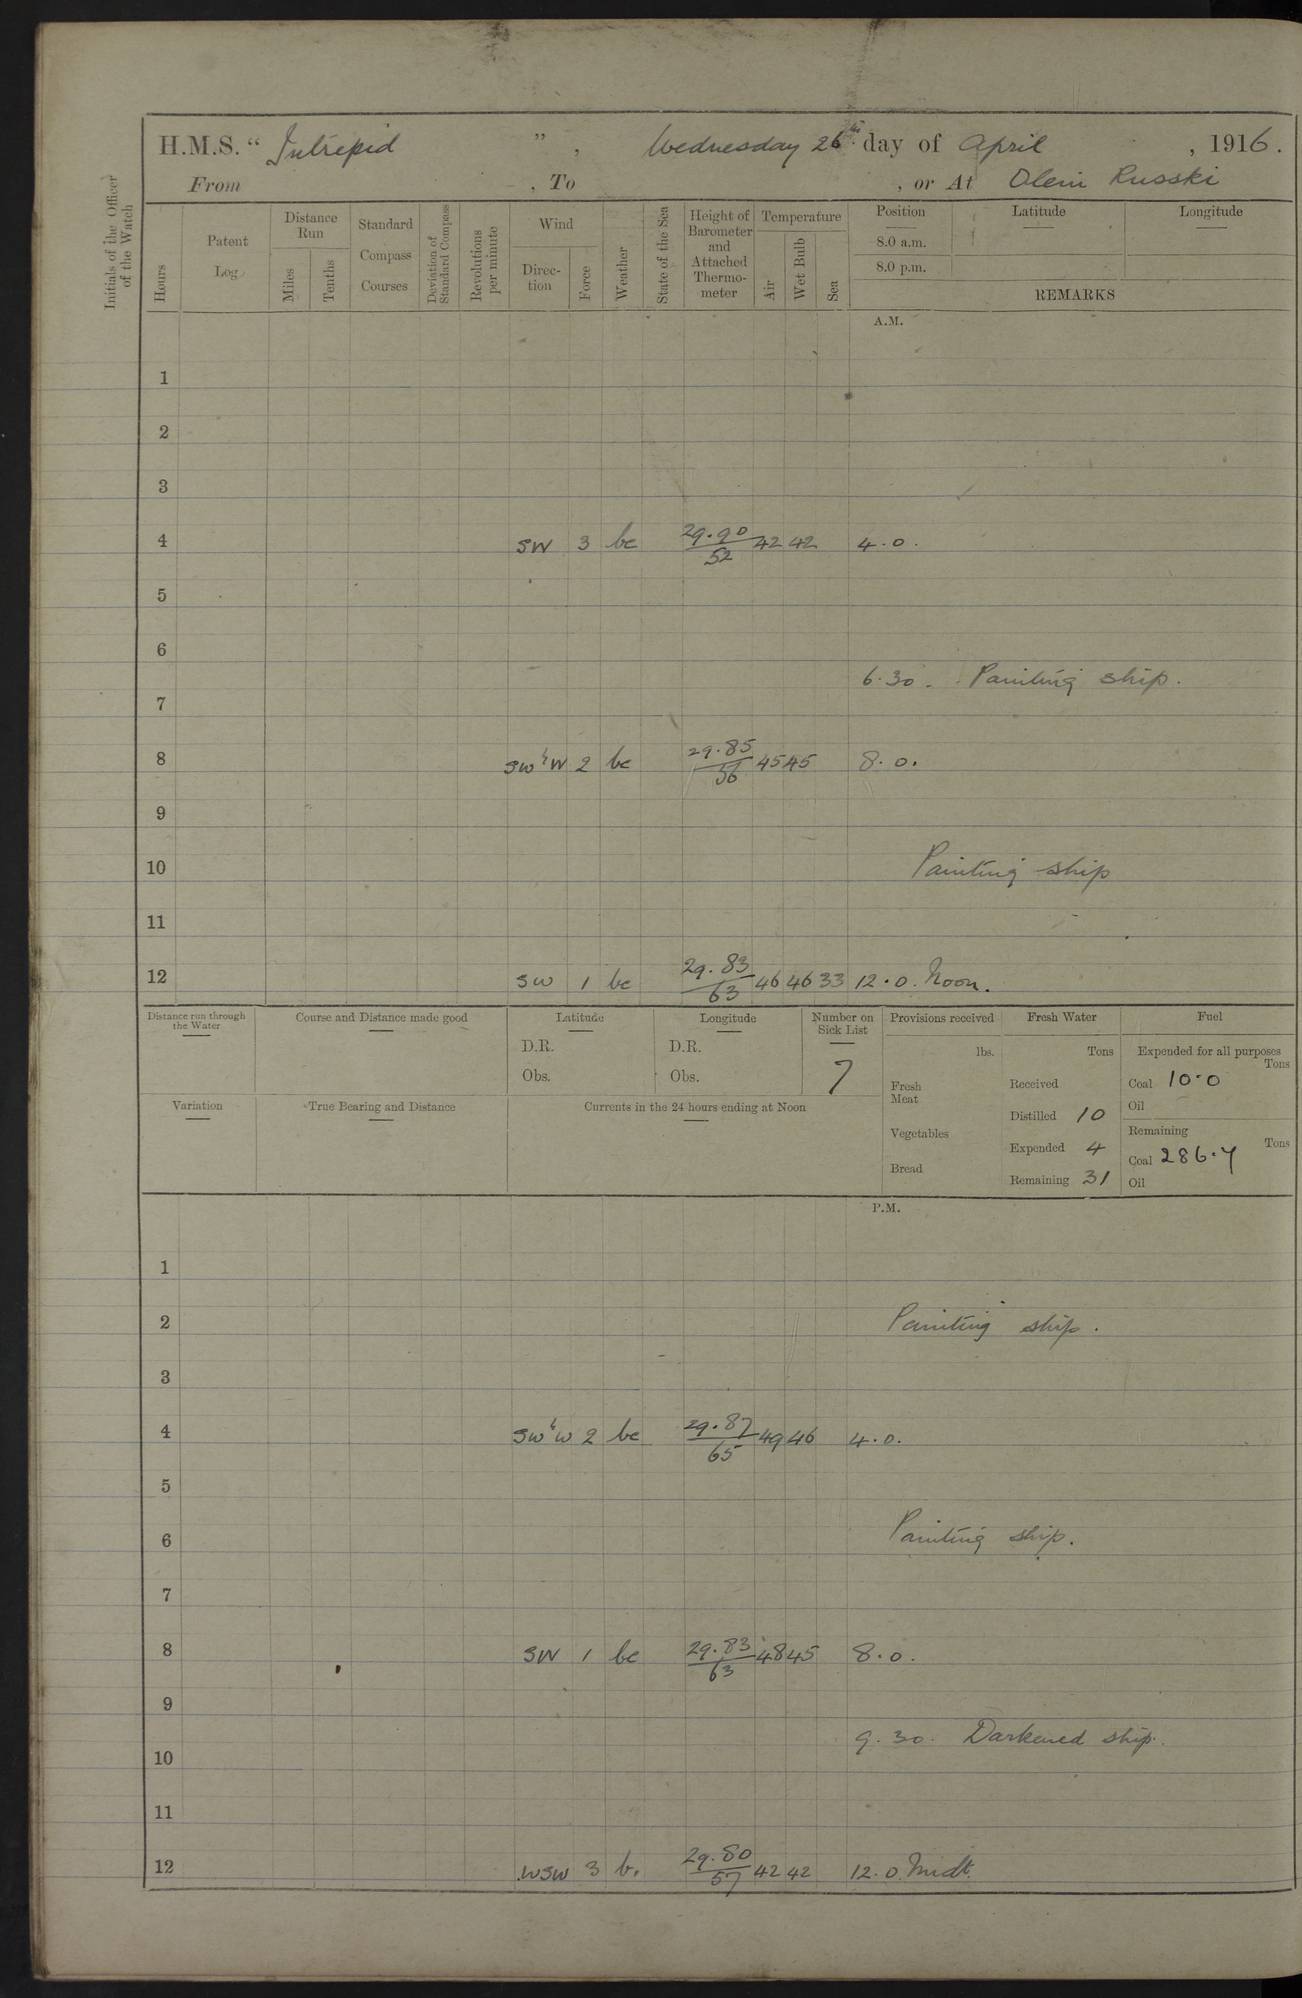 H.M.S. “ Intrepid ” , Wednesday 26th day of April , 1916.
From , To , or At Oleni Russki
Initials of the Officer of the Watch
Hours
Patent Log
Distance Run
Miles
Tenths
Standard Compass Courses
Deviation of Standard Compass
Revolutions per minute
Wind
Direction
Force
Weather
State of the Sea
Height of Barometer and Attached Thermometer
Temperature
Air
Wet Bulb
Sea
Position Latitude Longitude
8.0 a.m.
8.0 p.m.
REMARKS
A.M.
1
2
3
4 SW 3 bc 29.90/52 42 42 4.0.
5
6
6.30. Painting ship.
7
8 SWbW 2 bc 29.85/56 45 45 8.0.
9
10 Painting ship
11
12 SW 1 bc 29.83/63 46 46 33 12.0. Noon.
Distance run through the Water
Course and Distance made good
Latitude
D.R.
Obs.
Longitude
D.R.
Obs.
Number on Sick List
7
Provisions received
lbs.
Fresh Meat
Vegetables
Bread
Fresh Water
Tons
Received
Distilled 10
Expended 4
Remaining 31
Fuel
Expended for all purposes
Tons
Coal 10.0
Oil
Remaining
Tons
Coal 286.7
Oil
Variation
True Bearing and Distance
Currents in the 24 hours ending at Noon
P.M.
1
2 Painting ship.
3
4 SWbW 2 bc 29.87/65 49 46 4.0.
5
6 Painting ship.
7
8 SW 1 bc 29.83/63 48 45 8.0.
9
9.30. Darkened ship.
10
11
12 WSW 3 b. 29.80/57 42 42 12.0. Midt.